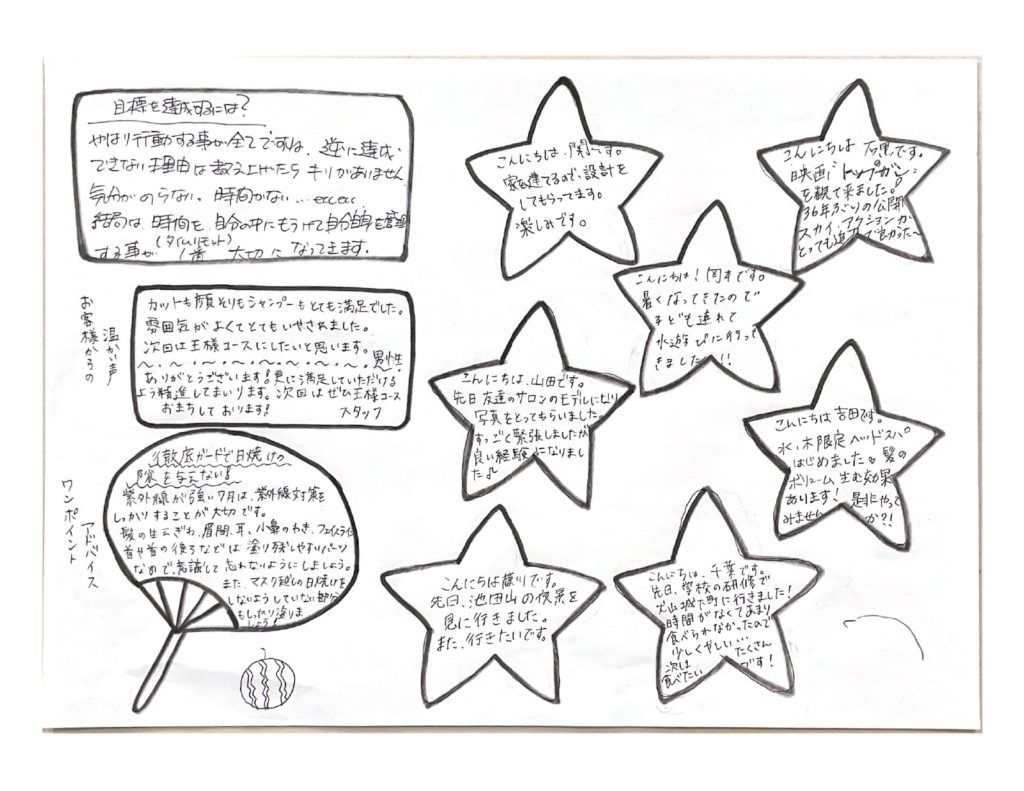 目標を達成するには?
やはり行動する事が全てですね。逆に達成
できない理由は数え上げたらキリがありません
気分がのらない、時間がない…ecc,ecc
結局は、時間を、自分の中にもうけて自分自身を管理
(タイムリミット)
する事が 1番 大切になってきます。
お客様からの
温かい声
カットも顔そりもシャンプーもとても満足でした。
雰囲気がよくてとてもいやされました。
次回は王様コースにしたいと思います。
男性
ありがとうございます!更に満足していただける
よう精進してまいります。次回はぜひ王様コース
おまちしております!
スタッフ
ワンポイント
アドバイス
徹底ガードで日焼けの
隙を与えない!
紫外線が強い7月は、紫外線対策を
しっかりすることが大切です。
髪の生えぎわ、眉間、耳、小鼻のわき、フェイスライン
首や首の後ろなどは塗り残しやすいパーツ
なので、意識して忘れないようにしましょう。
また、マスク越しの日焼けを
しないようしていない部分
もしっかり塗りま
しょう!
こんにちは、関です。
家を建てるので、設計を
してもらってます。
楽しみです。
こんにちは です。
映画「トップガン」
を観て来ました!
36年ぶりの公開
スカイ、アクションが、
とっても迫力で良かった〜
こんにちは!岡本です。
暑くなってきたので
子ども連れて
水遊びに行って
きました!!
こんにちは、山田です。
先日友達のサロンのモデルになり
写真をとってもらいました。
すっごく緊張しましたが
良い経験になりまし
た♪
こんにちは吉田です。
水、木限定ヘッドスパ
はじめました。髪の
ボリューム生む効果
あります! 是非やって
みませんか?!
こんにちは です。
先日、池田山の夜景を
見に行きました。
また、行きたいです。
こんにちは、千葉です。
先日、学校の研修で
犬山城下町に行きました!
時間がなくてあまり
食べられなかったので
少しくやしい…
次は たくさん
食べたい です!